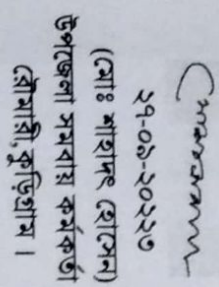 ২৭-০৯-২০২২৩
(মোঃ শাহাদৎ হোসেন)
উপজেলা সমবায় কর্মকর্তা
রৌমারি, কুড়িগ্রাম।